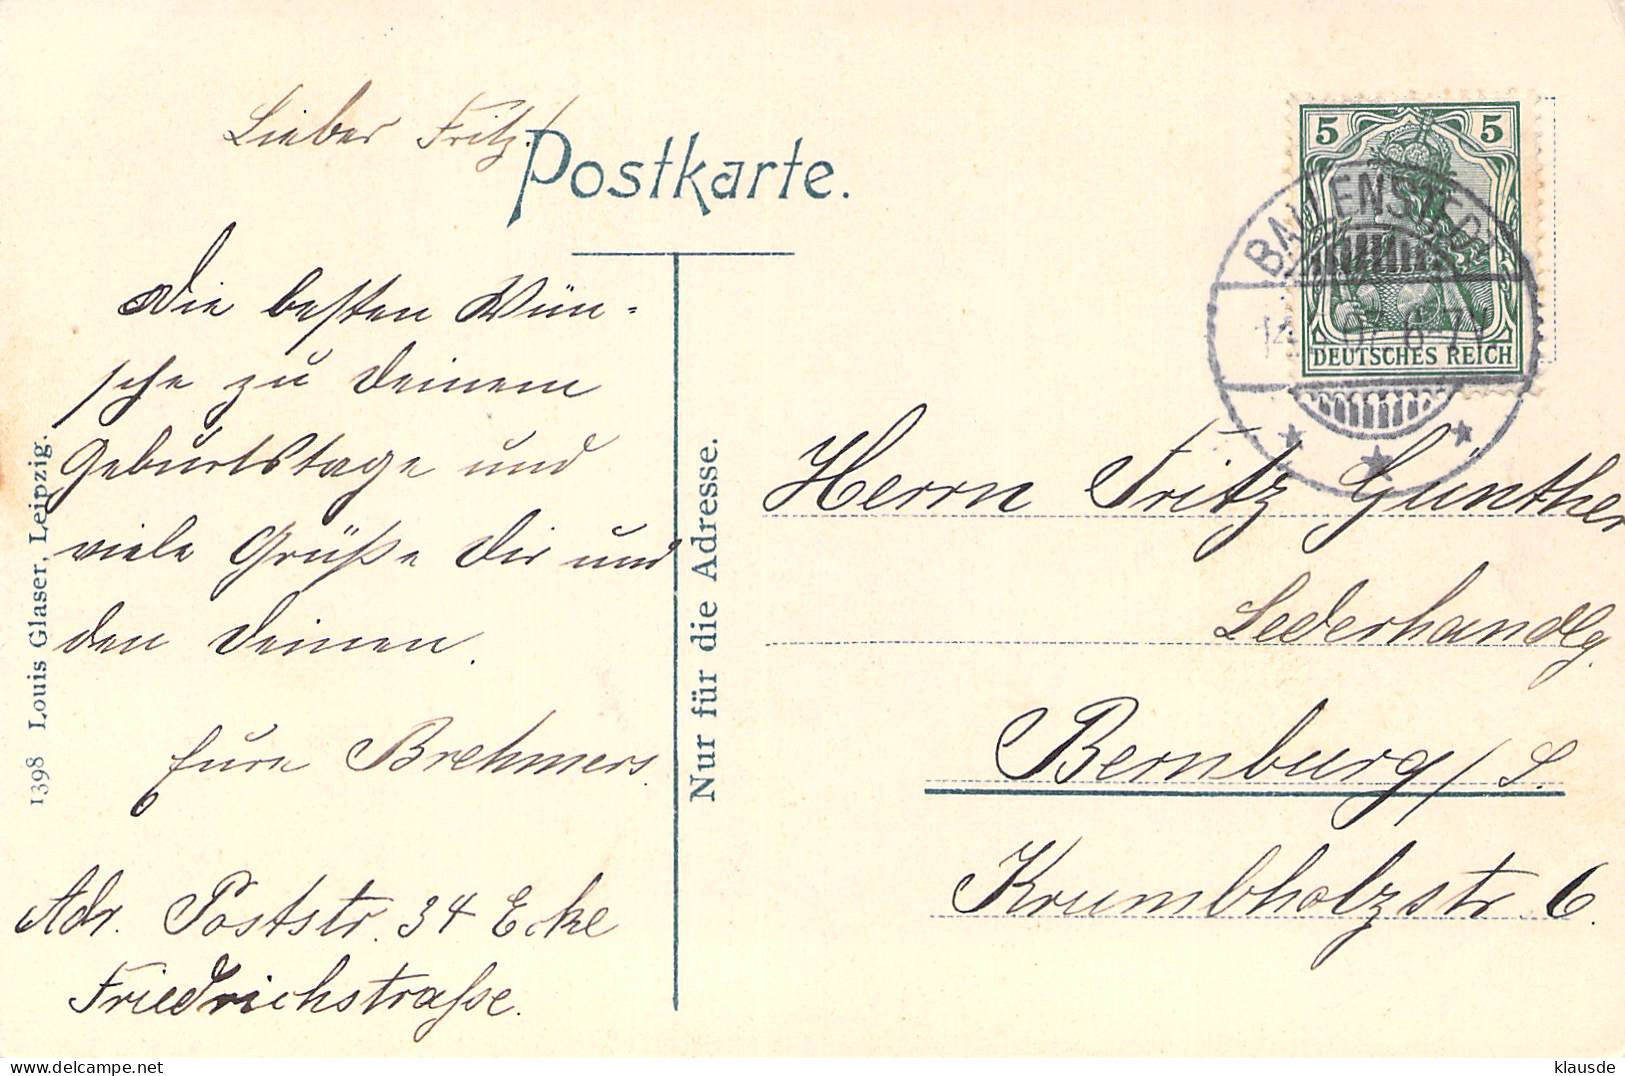 Lieber Fritz!
Postkarte.
Die besten Wün-
sche zu Deinem
Geburtstage und
viele Grüße Dir und
den Deinen.
Eure Brehmers.
Adr. Poststr. 34 Ecke
Friedrichstraße.
1398 Louis Glaser, Leipzig.
Nur für die Adresse.
5 5
DEUTSCHES REICH
BALLENSTEDT
14. 07. 6-7 N
Herrn Fritz Günther
Lederhandlg.
Bernburg/S.
Krumbholzstr. 6.
klausde